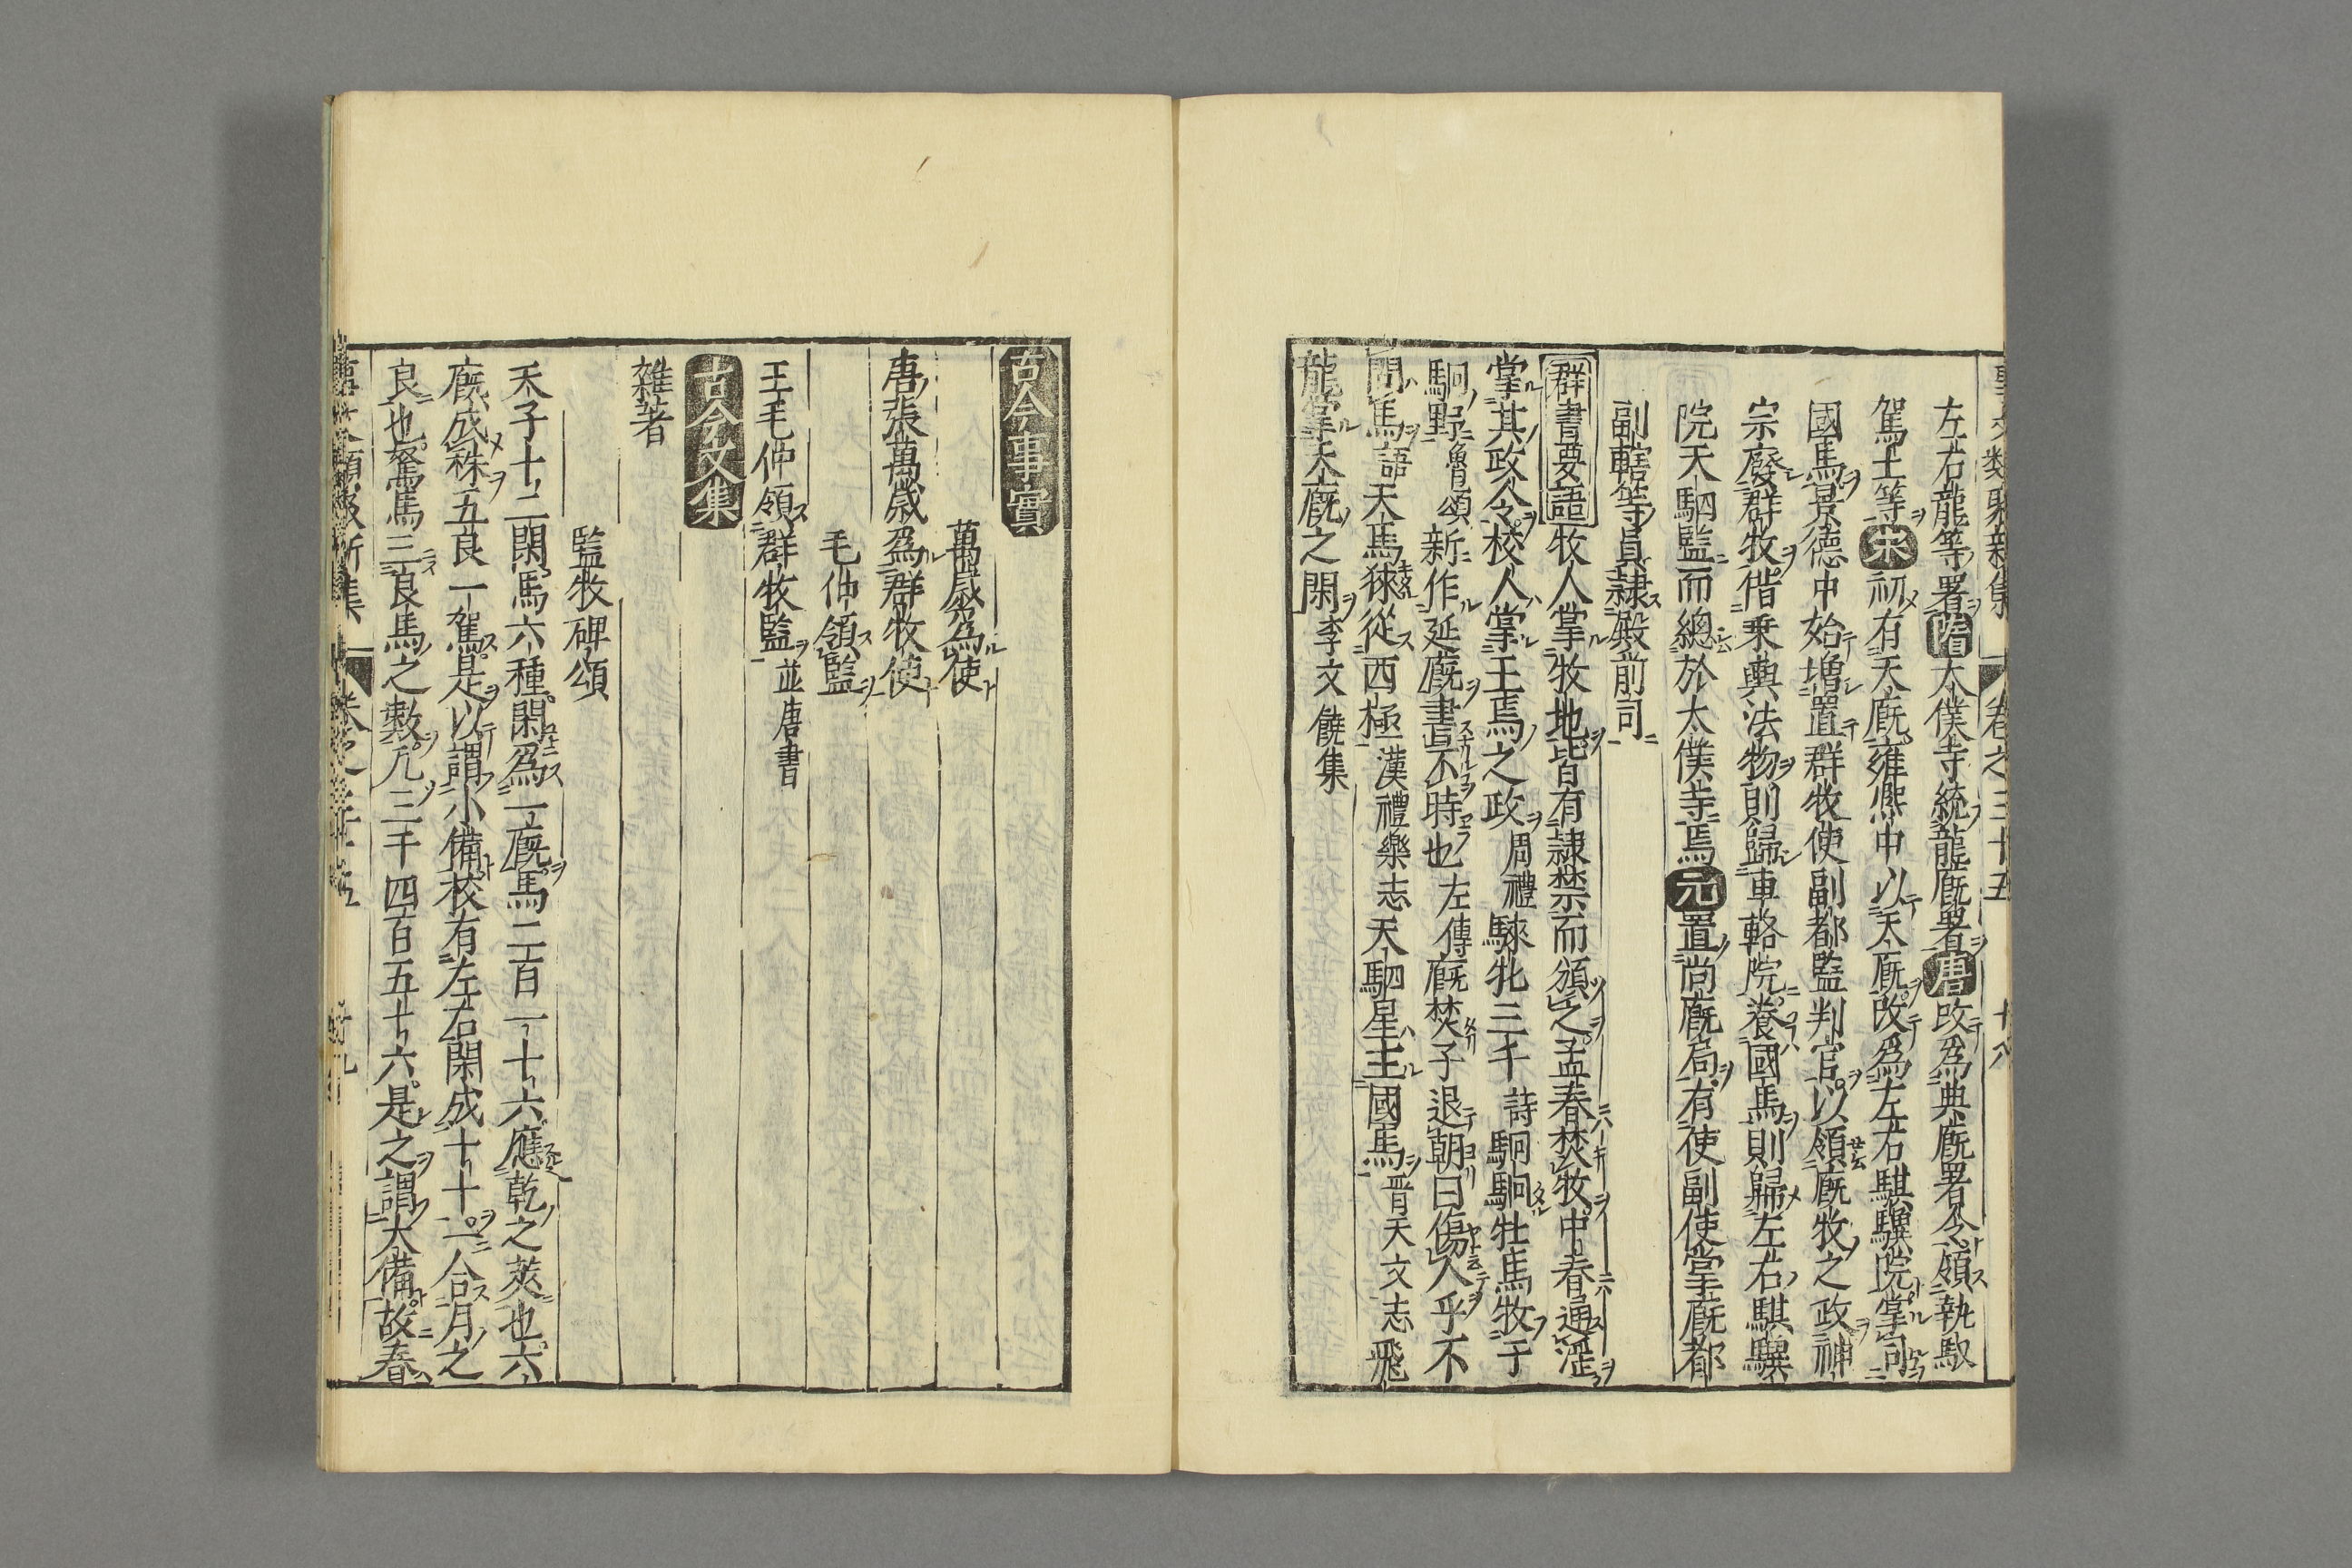 事文類聚新集 卷之三十五 十八
左右龍等署隋太僕寺統龍廐署唐改爲典廐署令領執馭
駕士等宋初有天廐雍熈中以天廐改爲左右騏驥院掌司
國馬景德中始增置群牧使副都監判官以領廐牧之政神
宗廢群牧偕乗輿法物則歸車輅院養國馬則歸左右騏驥
院天駟監而緫於太僕寺焉元置尚廐局有使副使掌廐都
副轄等員隷殿前司
群書要語牧人掌牧地皆有隷禁而頒之孟春焚牧中春通淫
掌其政令校人掌王焉之政周禮騋牝三千詩駉駉牡馬牧于
駉野魯頌新作延廐書不時也左傳廐焚子退朝曰傷人乎不
問馬語天馬徠從西極漢禮樂志天駟星主國馬晋天文志飛
龍掌天廐之閑李文饒集
古今事實
萬歲爲使
唐張萬歲爲群牧使
毛仲領監
王毛仲領群牧監並唐書
古今文集
雜著
監牧碑頌
天子十二閑馬六種閑爲一廐馬二百一十六應乾之策也六
廐成秣五良一駕是以謂小備校有左右閑成十十二合月之
良也駑馬三良馬之數凡三千四百五十六是之謂大備故春